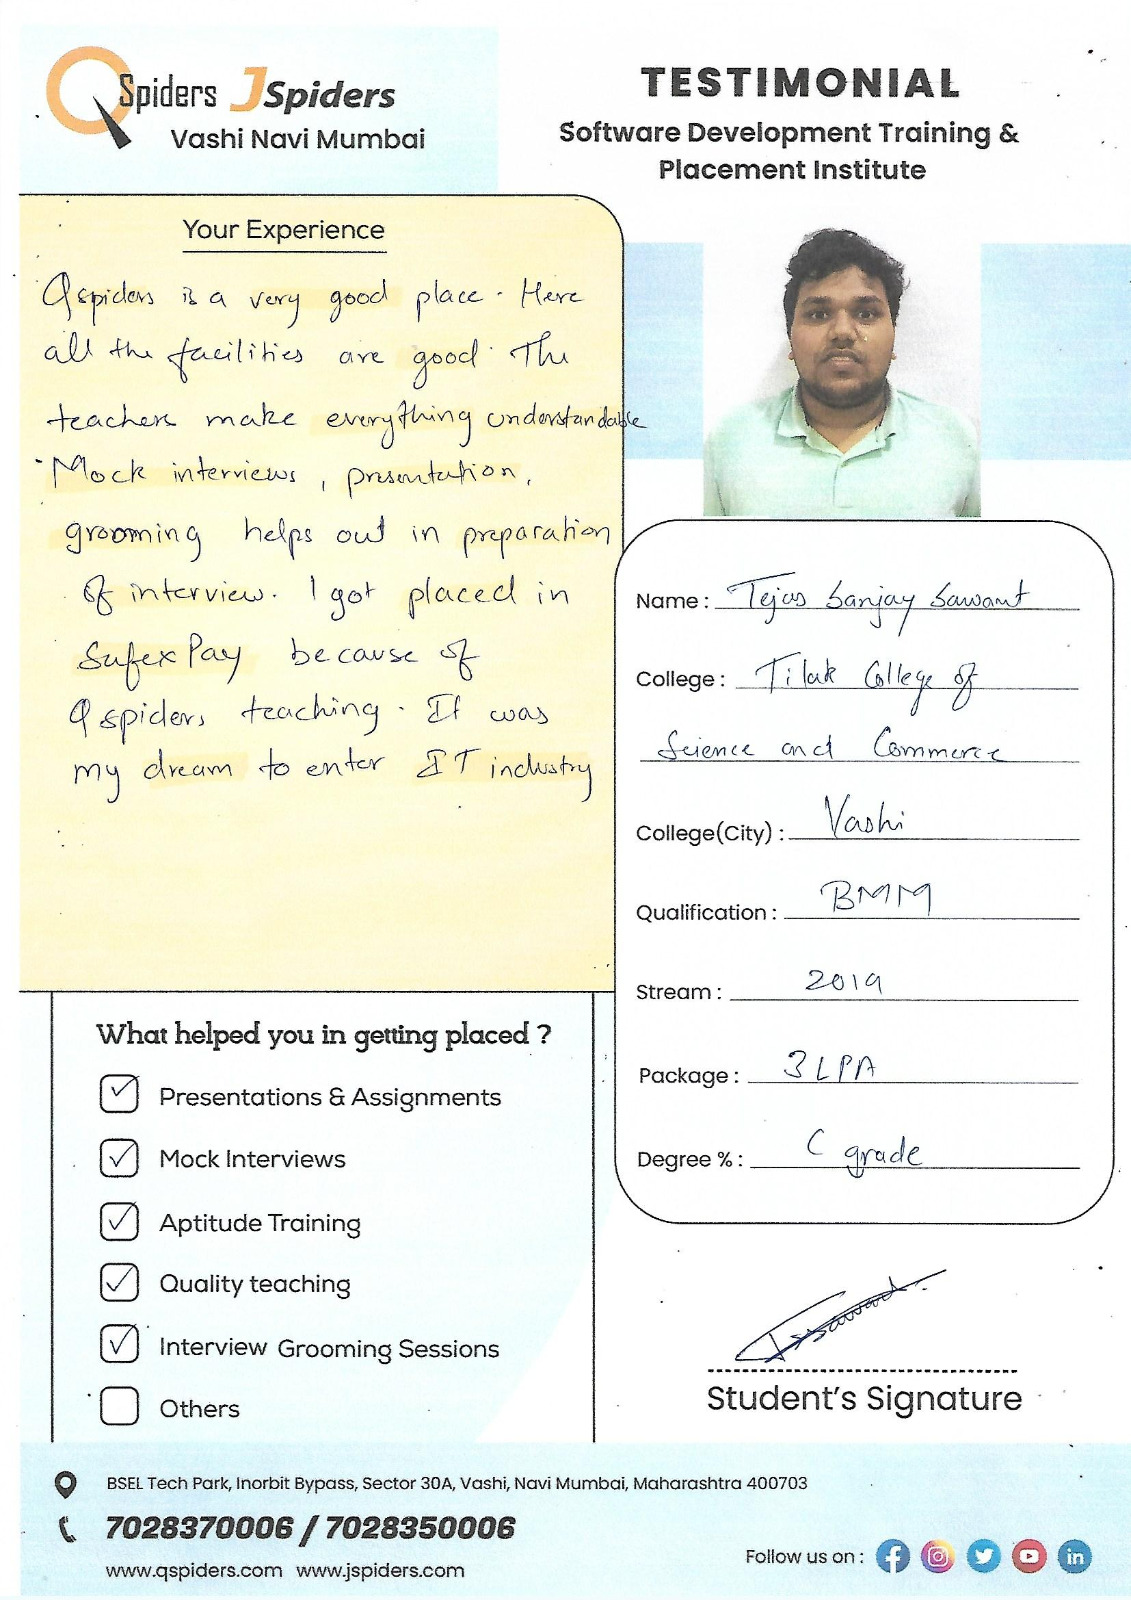 QSpiders JSpiders
Vashi Navi Mumbai
TESTIMONIAL
Software Development Training &
Placement Institute
Your Experience
Qspiders is a very good place. Here
all the facilities are good. The
teachers make everything understandable
Mock interviews, presentation,
grooming helps out in preparation
of interview. I got placed in
SafexPay because of
Qspiders teaching. It was
my dream to enter IT industry
Name : Tejas Sanjay Sawant
College : Tilak College of
Science and Commerce
College(City) : Vashi
Qualification : BMM
Stream : 2019
Package : 3 LPA
Degree % : C grade
What helped you in getting placed ?
Presentations & Assignments
Mock Interviews
Aptitude Training
Quality teaching
Interview Grooming Sessions
Others
Student's Signature
BSEL Tech Park, Inorbit Bypass, Sector 30A, Vashi, Navi Mumbai, Maharashtra 400703
7028370006 / 7028350006
www.qspiders.com www.jspiders.com
Follow us on :